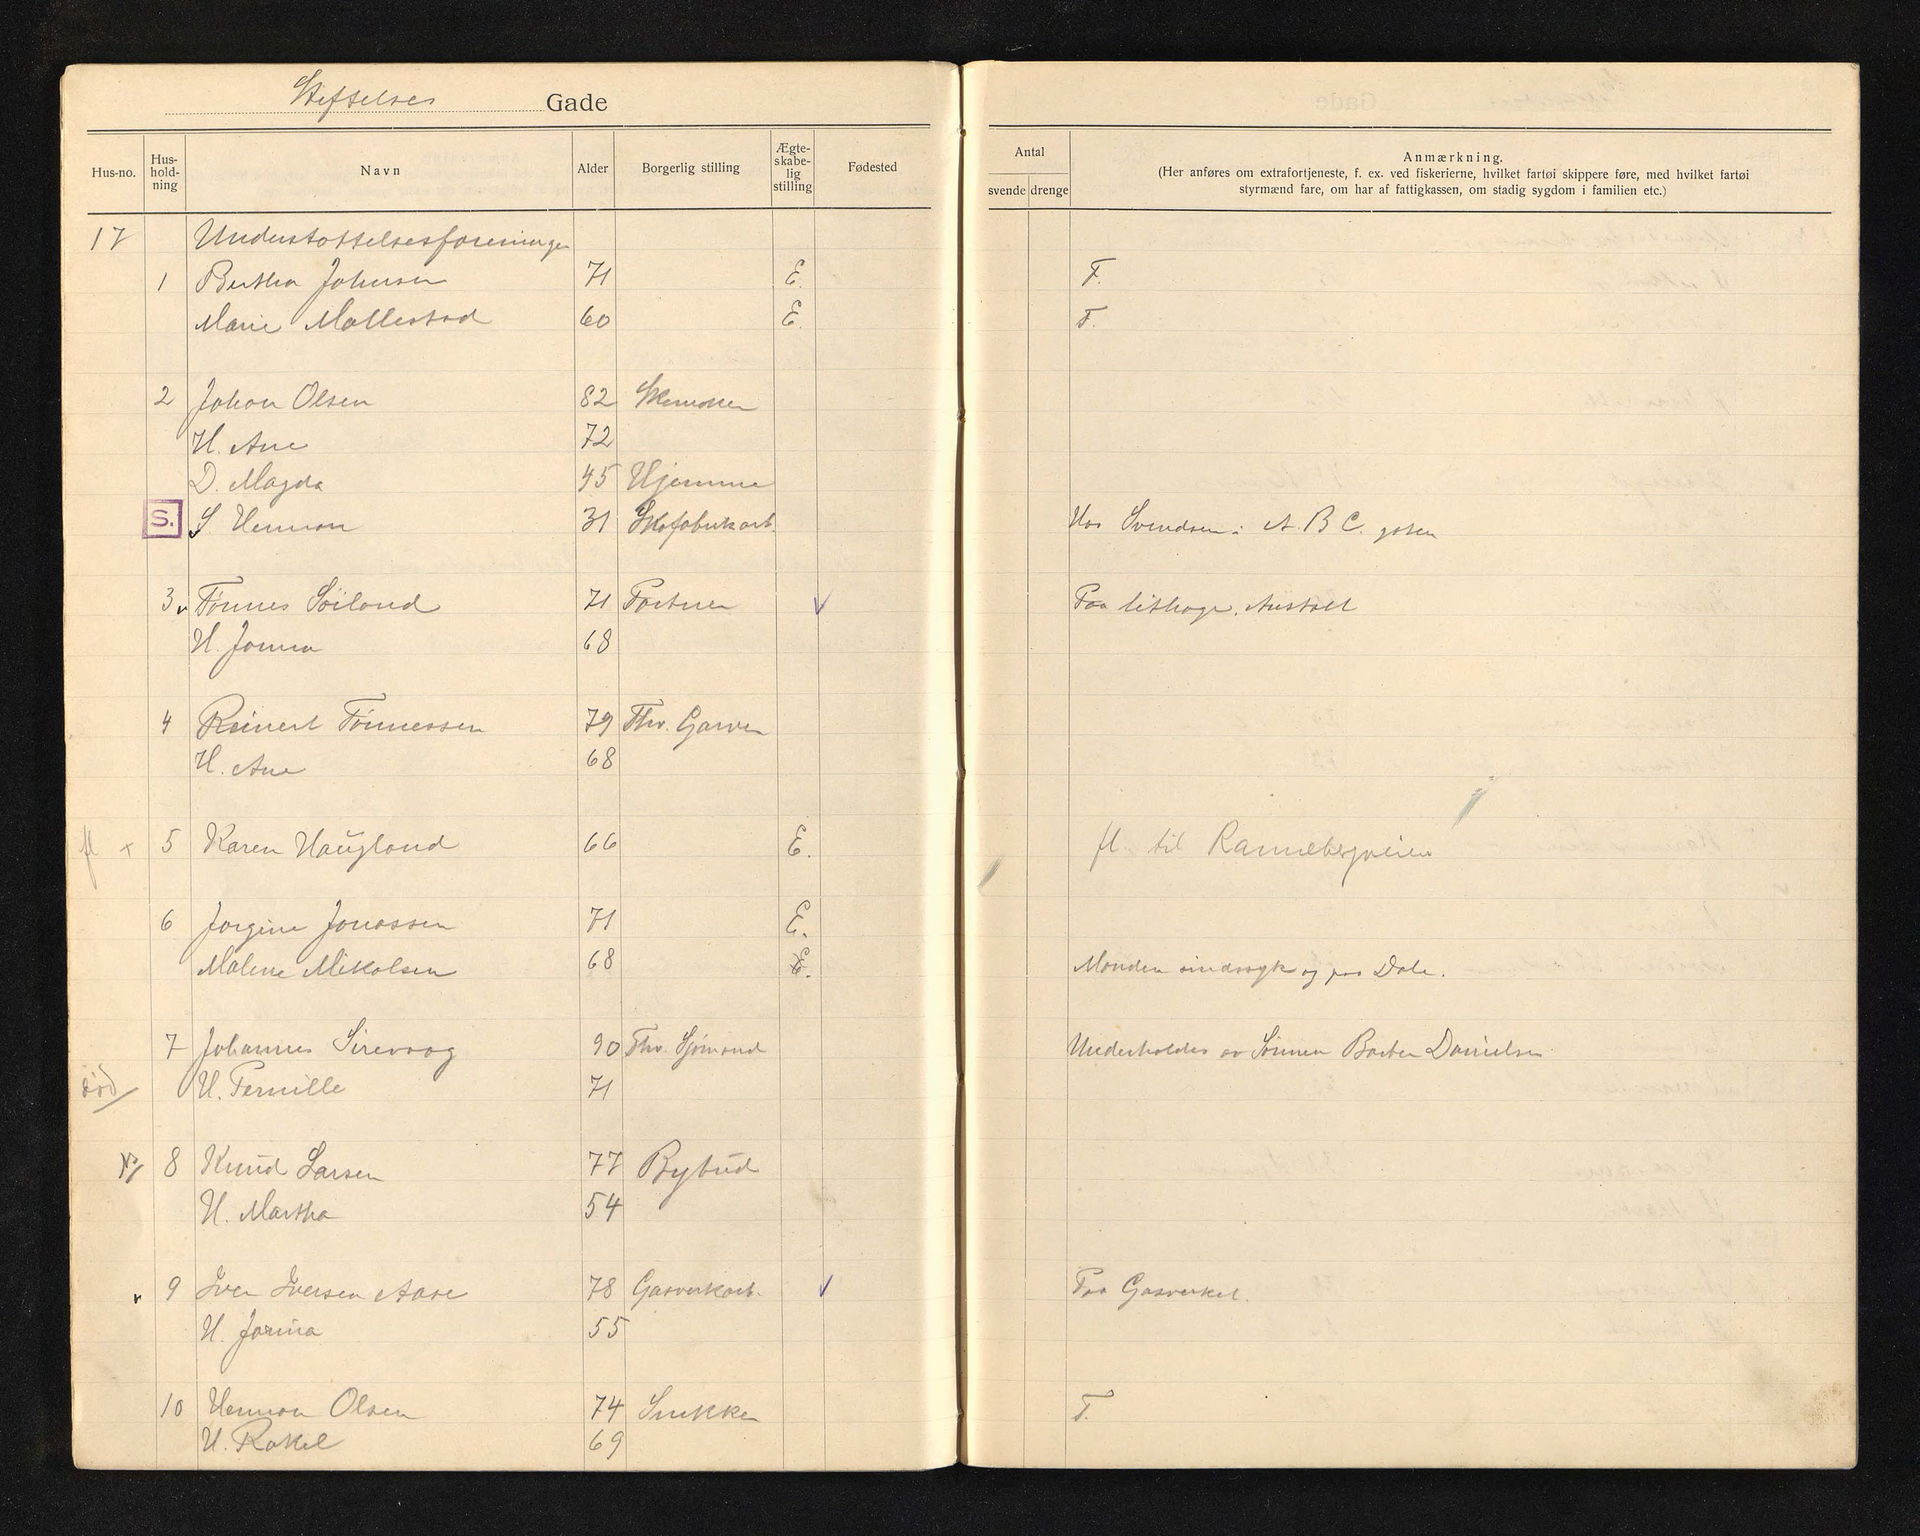 Stiftelses Gade
Hus-no. Hus-hold-ning Navn Alder Borgerlig stilling Ægte-skabe-lig stilling Fødested
17 Understøttelsesforeningen
1 Bertha Johnsen 71 E.
Marie Mollestad 60 E.
2 Johan Olsen 82 Skomaker
H. Ane 72
D. Magda 45 Hjemme
S. S. Herman 31 Skofabrikarb.
3 Tønnes Söiland 71 Portner
H. Jonna 68
4 Reinert Tønnessen 79 Fhv. Garver
H. Ane 68
fl + 5 Karen Haugland 66 E.
6 Jorgine Jonassen 71 E.
Malene Mikalsen 68 E.
7 Johannes Sirevaag 90 Fhv. Sjömand
død H. Pernille 71
8 Knud Larsen 77 Bybud
H. Martha 54
9 Iver Iversen Aase 78 Gasverkarb.
H. Jorina 55
10 Herman Olsen 74 Snekker
H. Rakel 69
Antal
svende drenge
Anmærkning.
(Her anføres om extrafortjeneste, f. ex. ved fiskerierne, hvilket fartøi skippere føre, med hvilket fartøi
styrmænd fare, om har af fattigkassen, om stadig sygdom i familien etc.)
F.
F.
Hos Svendsen i A. B C. gaten
Paa lithogr. Anstalt
fl. til Rannebergveien
Manden sindssyk og paa Dale.
Underholdes av Sønnen Barber Danielsen
Paa Gasverket.
F.